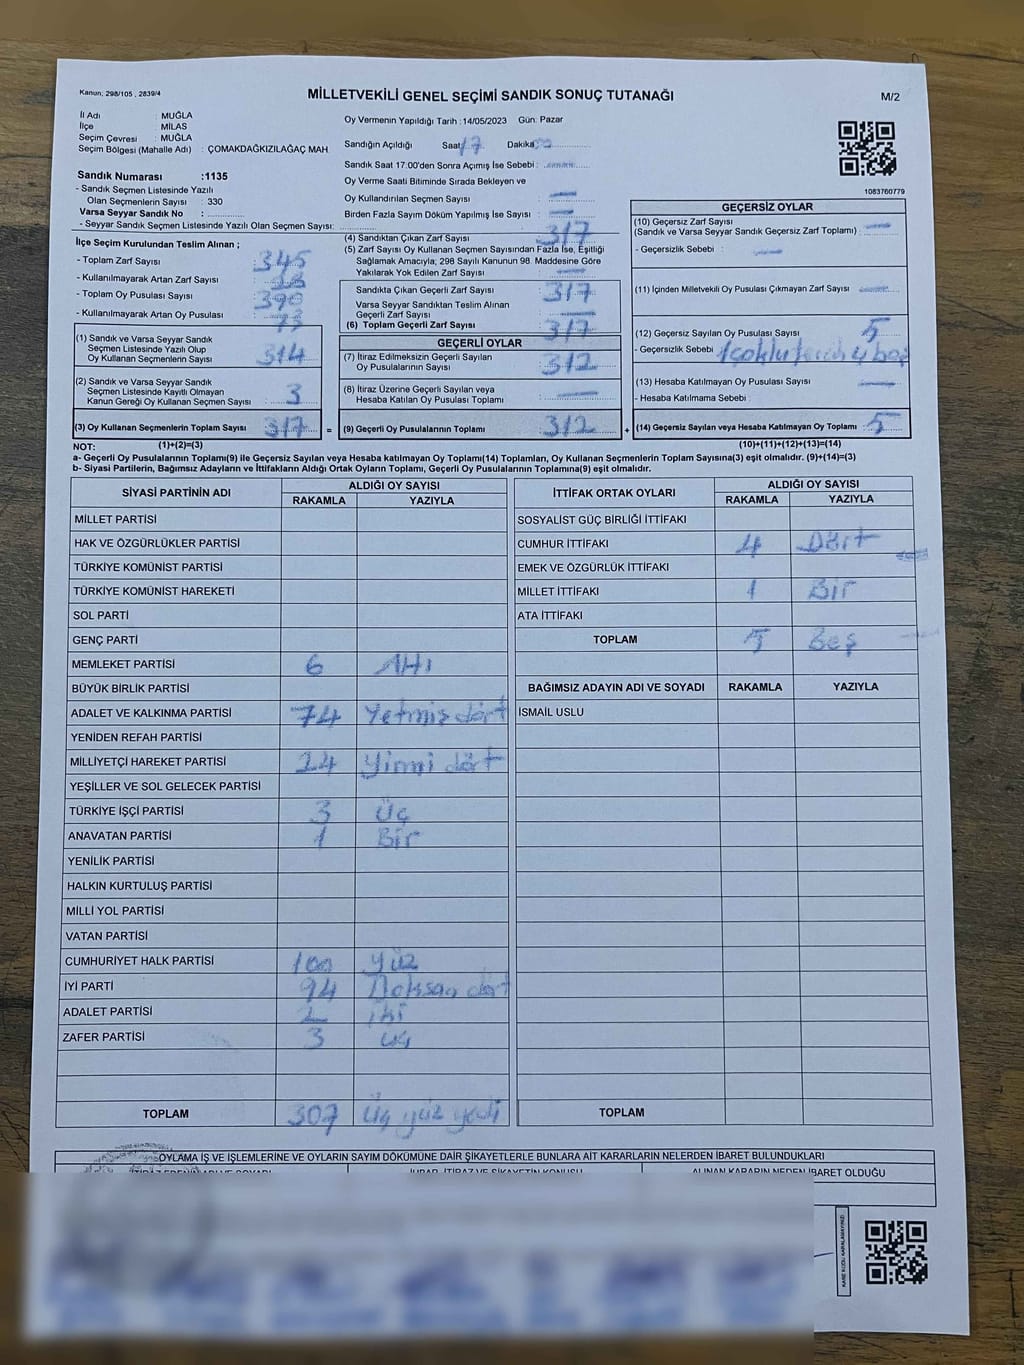 Kanun; 298/105 , 2839/4
MİLLETVEKİLİ GENEL SEÇİMİ SANDIK SONUÇ TUTANAĞI
M/2
İl Adı : MUĞLA
İlçe : MİLAS
Seçim Çevresi : MUĞLA
Seçim Bölgesi (Mahalle Adı) : ÇOMAKDAĞKIZILAĞAÇ MAH.
Sandık Numarası :1135
- Sandık Seçmen Listesinde Yazılı
Olan Seçmenlerin Sayısı : 330
Varsa Seyyar Sandık No :
- Seyyar Sandık Listesinde Yazılı Olan Seçmen Sayısı:
İlçe Seçim Kurulundan Teslim Alınan ;
- Toplam Zarf Sayısı : 345
- Kullanılmayarak Artan Zarf Sayısı : 28
- Toplam Oy Pusulası Sayısı : 390
- Kullanılmayarak Artan Oy Pusulası : 73
(1) Sandık ve Varsa Seyyar Sandık
Seçmen Listesinde Yazılı Olup
Oy Kullanan Seçmenlerin Sayısı : 314
(2) Sandık ve Varsa Seyyar Sandık
Seçmen Listesinde Kayıtlı Olmayan
Kanun Gereği Oy Kullanan Seçmen Sayısı : 3
(3) Oy Kullanan Seçmenlerin Toplam Sayısı : 317
(1)+(2)=(3)
Oy Vermenin Yapıldığı Tarih :14/05/2023 Gün: Pazar
Sandığın Açıldığı Saat 17 Dakika 00
Sandık Saat 17:00'den Sonra Açılmış İse Sebebi :
Oy Verme Saati Bitiminde Sırada Bekleyen ve
Oy Kullandırılan Seçmen Sayısı : —
Birden Fazla Sayım Döküm Yapılmış İse Sayısı : —
(4) Sandıktan Çıkan Zarf Sayısı : 317
(5) Zarf Sayısı Oy Kullanan Seçmen Sayısından Fazla İse, Eşitliği
Sağlamak Amacıyla; 298 Sayılı Kanunun 98. Maddesine Göre
Yakılarak Yok Edilen Zarf Sayısı : —
Sandıkta Çıkan Geçerli Zarf Sayısı : 317
Varsa Seyyar Sandıktan Teslim Alınan
Geçerli Zarf Sayısı : —
(6) Toplam Geçerli Zarf Sayısı : 317
GEÇERLİ OYLAR
(7) İtiraz Edilmeksizin Geçerli Sayılan
Oy Pusulalarının Sayısı : 312
(8) İtiraz Üzerine Geçerli Sayılan veya
Hesaba Katılan Oy Pusulası Toplamı : —
= (9) Geçerli Oy Pusulalarının Toplamı : 312 +
1083760779
GEÇERSİZ OYLAR
(10) Geçersiz Zarf Sayısı
(Sandık ve Varsa Seyyar Sandık Geçersiz Zarf Toplamı) : —
- Geçersizlik Sebebi : —
(11) İçinden Milletvekili Oy Pusulası Çıkmayan Zarf Sayısı : —
(12) Geçersiz Sayılan Oy Pusulası Sayısı : 5
- Geçersizlik Sebebi : 1 çoklu tercih 4 boş
(13) Hesaba Katılmayan Oy Pusulası Sayısı : —
- Hesaba Katılmama Sebebi :
(14) Geçersiz Sayılan veya Hesaba Katılmayan Oy Toplamı : 5
(10)+(11)+(12)+(13)=(14)
NOT:
a- Geçerli Oy Pusulalarının Toplamı(9) ile Geçersiz Sayılan veya Hesaba Katılmayan Oy Toplamı(14) Toplamları, Oy Kullanan Seçmenlerin Toplam Sayısına(3) eşit olmalıdır. (9)+(14)=(3)
b- Siyasi Partilerin, Bağımsız Adayların ve İttifakların Aldığı Ortak Oyların Toplamı, Geçerli Oy Pusulalarının Toplamına(9) eşit olmalıdır.
SİYASİ PARTİNİN ADI ALDIĞI OY SAYISI
RAKAMLA YAZIYLA
MİLLET PARTİSİ
HAK VE ÖZGÜRLÜKLER PARTİSİ
TÜRKİYE KOMÜNİST PARTİSİ
TÜRKİYE KOMÜNİST HAREKETİ
SOL PARTİ
GENÇ PARTİ
MEMLEKET PARTİSİ 6 Altı
BÜYÜK BİRLİK PARTİSİ
ADALET VE KALKINMA PARTİSİ 74 Yetmiş dört
YENİDEN REFAH PARTİSİ
MİLLİYETÇİ HAREKET PARTİSİ 24 Yirmi dört
YEŞİLLER VE SOL GELECEK PARTİSİ
TÜRKİYE İŞÇİ PARTİSİ 3 Üç
ANAVATAN PARTİSİ 1 Bir
YENİLİK PARTİSİ
HALKIN KURTULUŞ PARTİSİ
MİLLİ YOL PARTİSİ
VATAN PARTİSİ
CUMHURİYET HALK PARTİSİ 100 Yüz
İYİ PARTİ 94 Doksan dört
ADALET PARTİSİ 2 iki
ZAFER PARTİSİ 3 üç
TOPLAM 307 Üç yüz yedi
İTTİFAK ORTAK OYLARI ALDIĞI OY SAYISI
RAKAMLA YAZIYLA
SOSYALİST GÜÇ BİRLİĞİ İTTİFAKI
CUMHUR İTTİFAKI 4 Dört
EMEK VE ÖZGÜRLÜK İTTİFAKI
MİLLET İTTİFAKI 1 Bir
ATA İTTİFAKI
TOPLAM 5 Beş
BAĞIMSIZ ADAYIN ADI VE SOYADI RAKAMLA YAZIYLA
İSMAİL USLU
TOPLAM
OYLAMA İŞ VE İŞLEMLERİNE VE OYLARIN SAYIM DÖKÜMÜNE DAİR ŞİKAYETLERLE BUNLARA AİT KARARLARIN NELERDEN İBARET BULUNDUKLARI
İTİRAZ EDENİN ADI VE SOYADI İHBAR, İTİRAZ VE ŞİKAYETİN KONUSU ALINAN KARARIN NEDEN İBARET OLDUĞU
KARE KODU KARALAMAYINIZ!